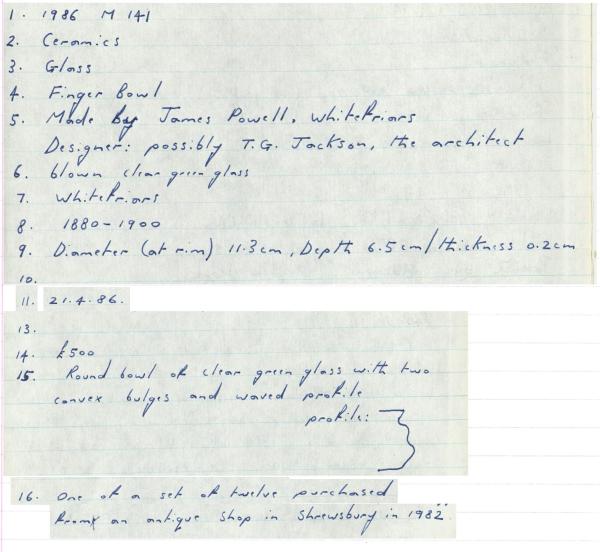 1. 1986 M 141
2. Ceramics
3. Glass
4. Finger Bowl
5. Made by James Powell, Whitefriars
Designer: possibly T.G. Jackson, the architect
6. blown clear green glass
7. Whitefriars
8. 1880-1900
9. Diameter (at rim) 11.3cm, Depth 6.5cm/thickness 0.2cm
10.
11. 21.4.86.
13.
14. £500
15. Round bowl of clear green glass with two
convex bulges and waved profile
profile:
16. One of a set of twelve purchased
from an antique shop in Shrewsbury in 1982.